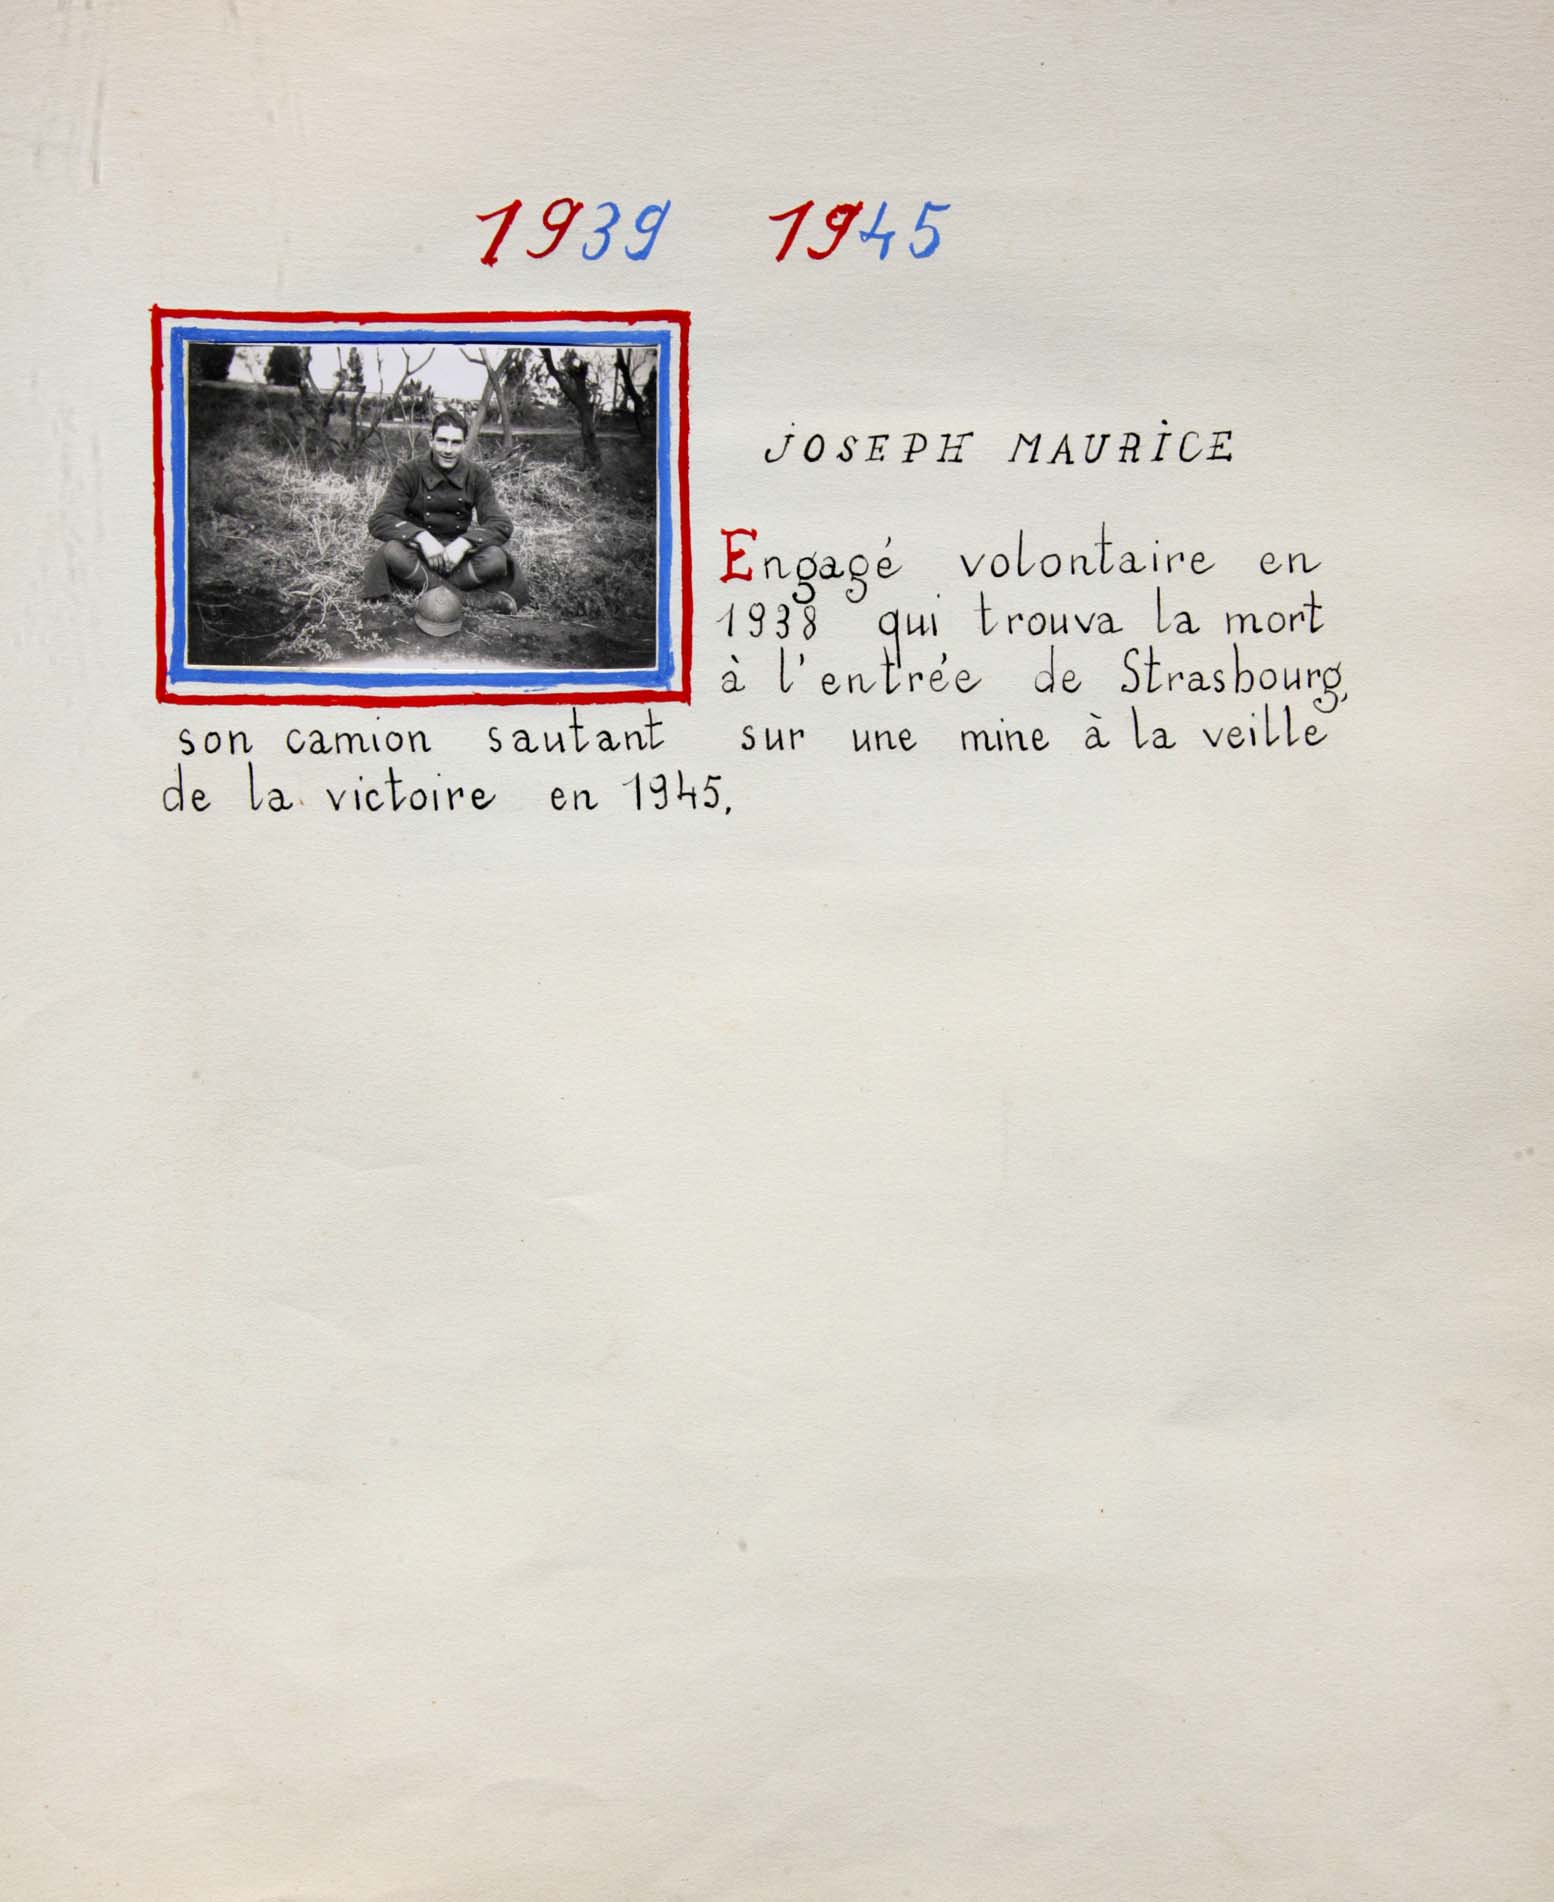 1939 1945
JOSEPH MAURICE
Engagé volontaire en
1938 qui trouva la mort
à l'entrée de Strasbourg,
son camion sautant sur une mine à la veille
de la victoire en 1945.